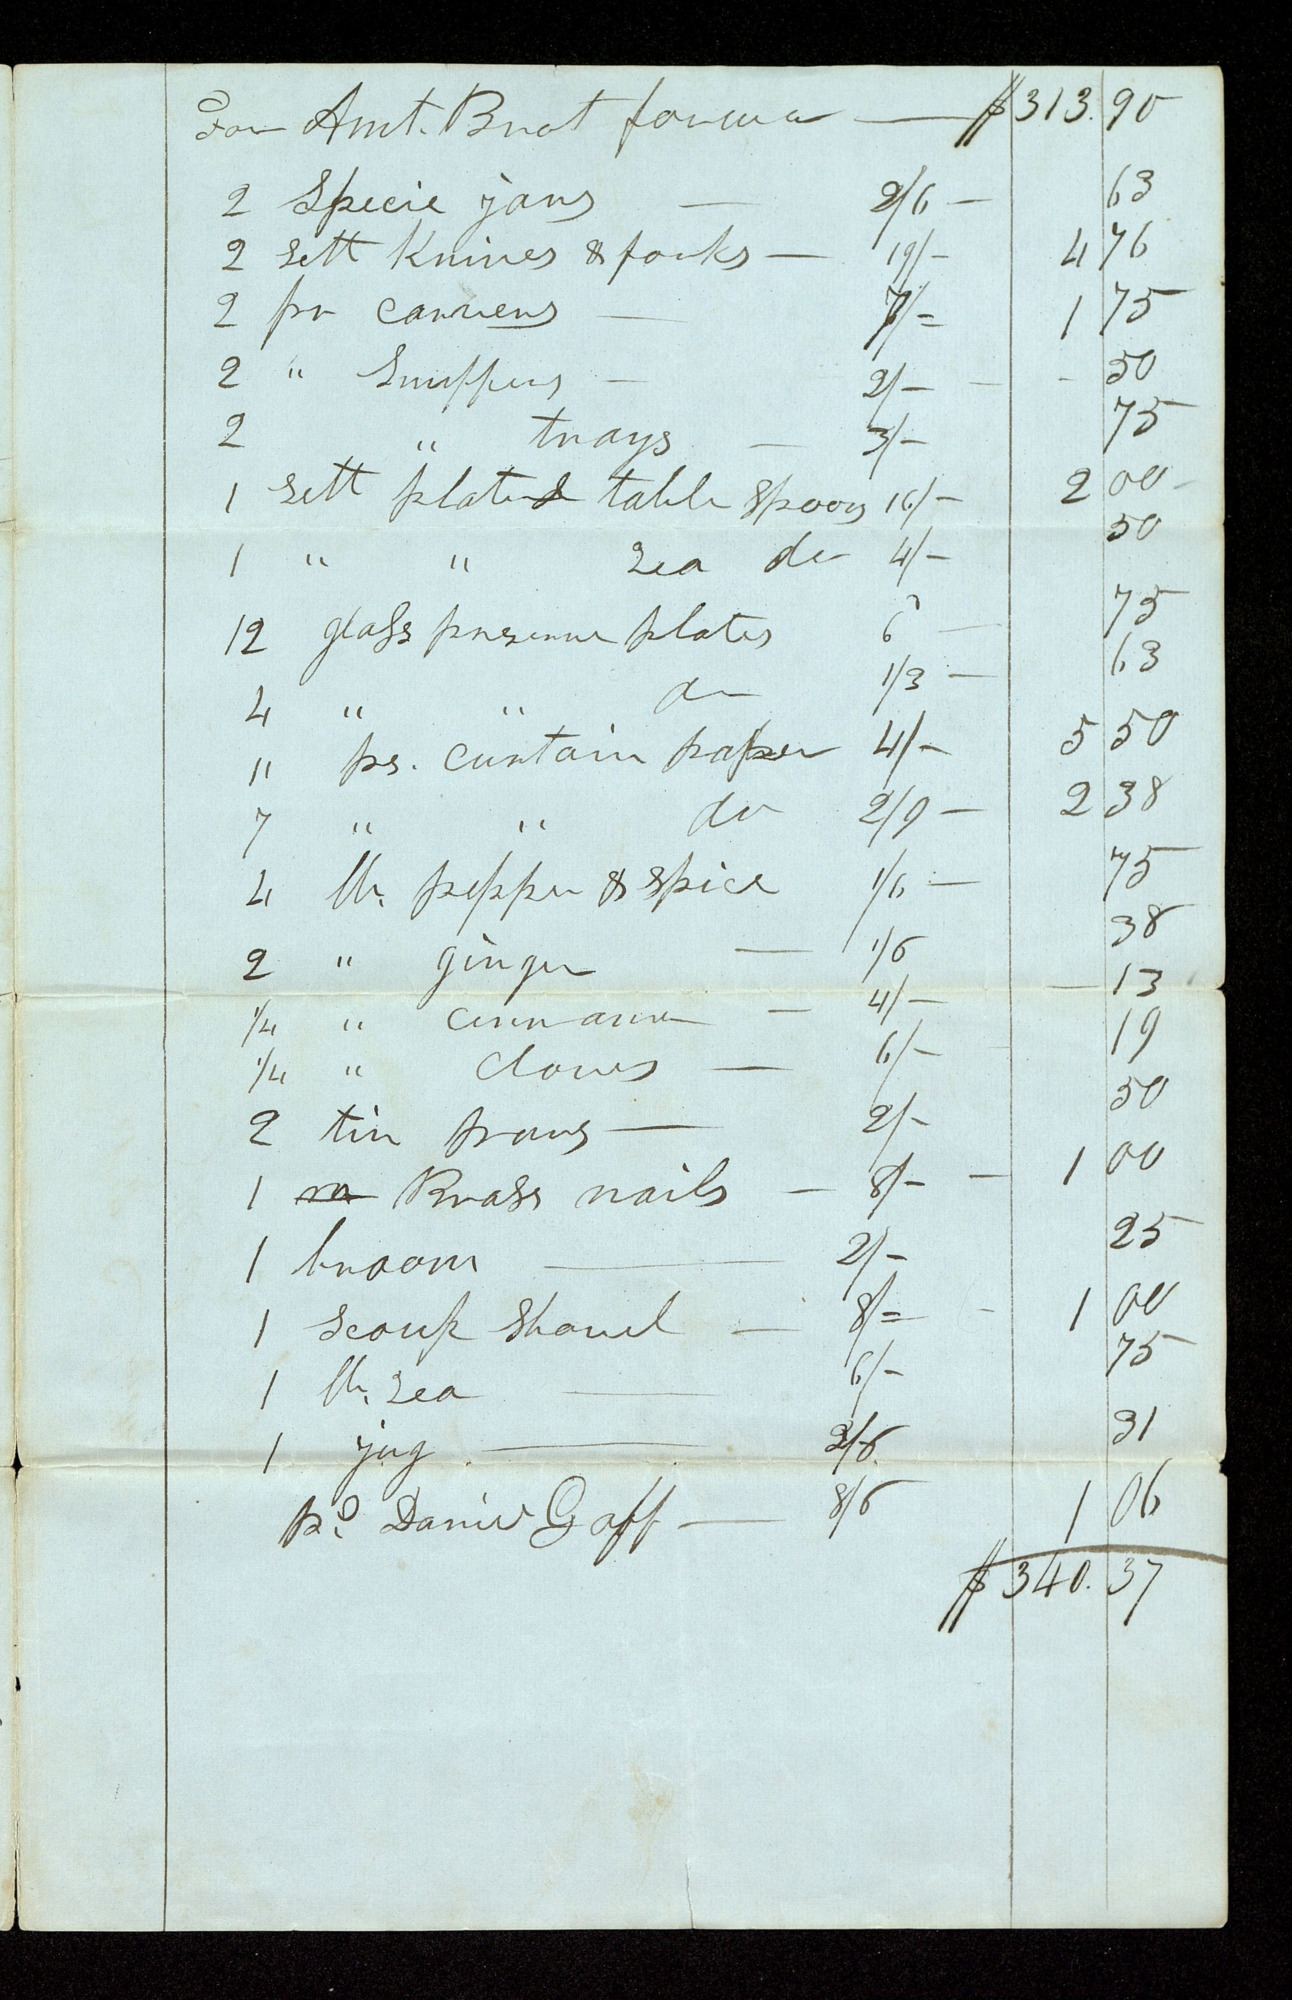 For Amt. Brot forward — $313.90
2 Specie jars — 2/6 — 63
2 sett Knives & forks — 19/- 4 76
2 pr carvers — 7/= 1 75
2 " Snuffers — 2/- - - 50
2 " trays — 3/- 75
1 sett plated table spoons 16/- 2 00
1 " " Tea do 4/- 50
12 glass preserve plates 6 — 75
4 " " do 1/3 — 63
11 ps. curtain paper 4/- 5 50
7 " " do 2/9 — 2 38
4 lb. pepper & spice 1/6 — 75
2 " ginger — 1/6 38
1/4 " cinnamon — 4/- — 13
1/4 " cloves — 6/- 19
2 tin pans — 2/- 50
1 m Brass nails — 8/- — 1 00
1 broom — 2/- 25
1 scoup shovel — 8/= - 1 00
1 lb. Tea — 6/- 75
1 jug — 2/6 31
pd. Daniel Goff — 8/6 1 06
$340.37